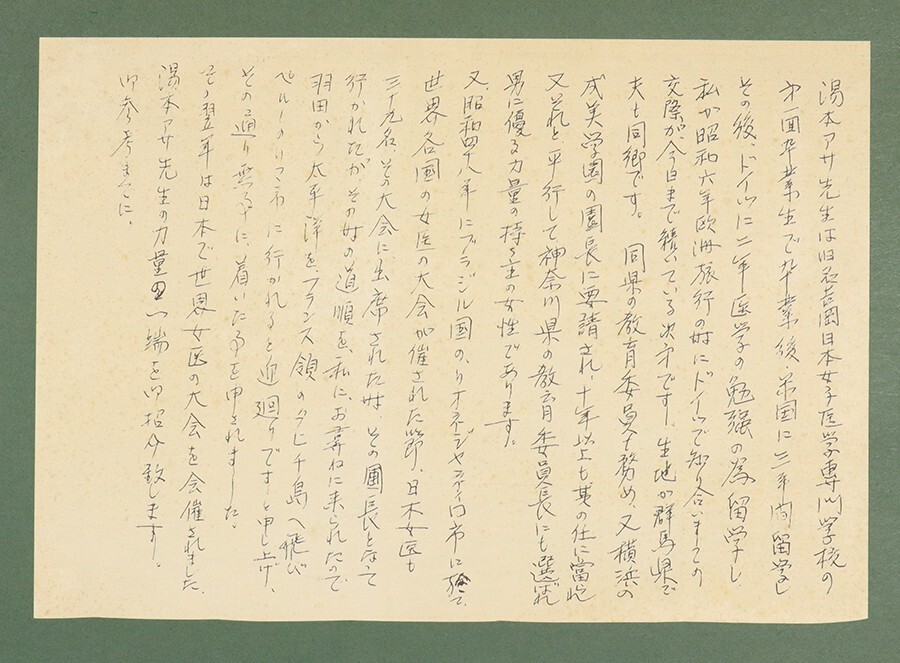 湯本アサ先生は旧名吉岡日本女子医学専門学校の
第一回卒業生で卒業後、米国に三年間留学し
その後、ドイツに二年医学の勉強の為留学し
私が昭和六年欧洲旅行の時にドイツで知り合いましての
交際が、今日まで続いている次第です。生地が群馬県で
夫も同郷です。 同県の教育委員を務め、又横浜の
成美学園の園長に要請され、十年以上も其の仕に当り
又、それと、平行して神奈川県の教育委員長にも選ばれ
男に優る力量の持ち主の女性であります。
又、昭和四十八年にブラジル国の、リオネジャネイロ市に於て、
世界各国の女医の大会が催された節、日本女医も
三十九名、その大会に出席された時、その団長となって
行かれたがその時の道順を、私に、お尋ねに来られたので
羽田から太平洋を、フランス領のタヒチ島へ飛び
ペルーのリマ市に行かれると近廻りですと申し上げ、
その通り無事に、着いた事を申されました。
その翌年は日本で世界女医の大会を会催されました。
湯本アサ先生の力量の一端を御招介致します。
御参考までに。